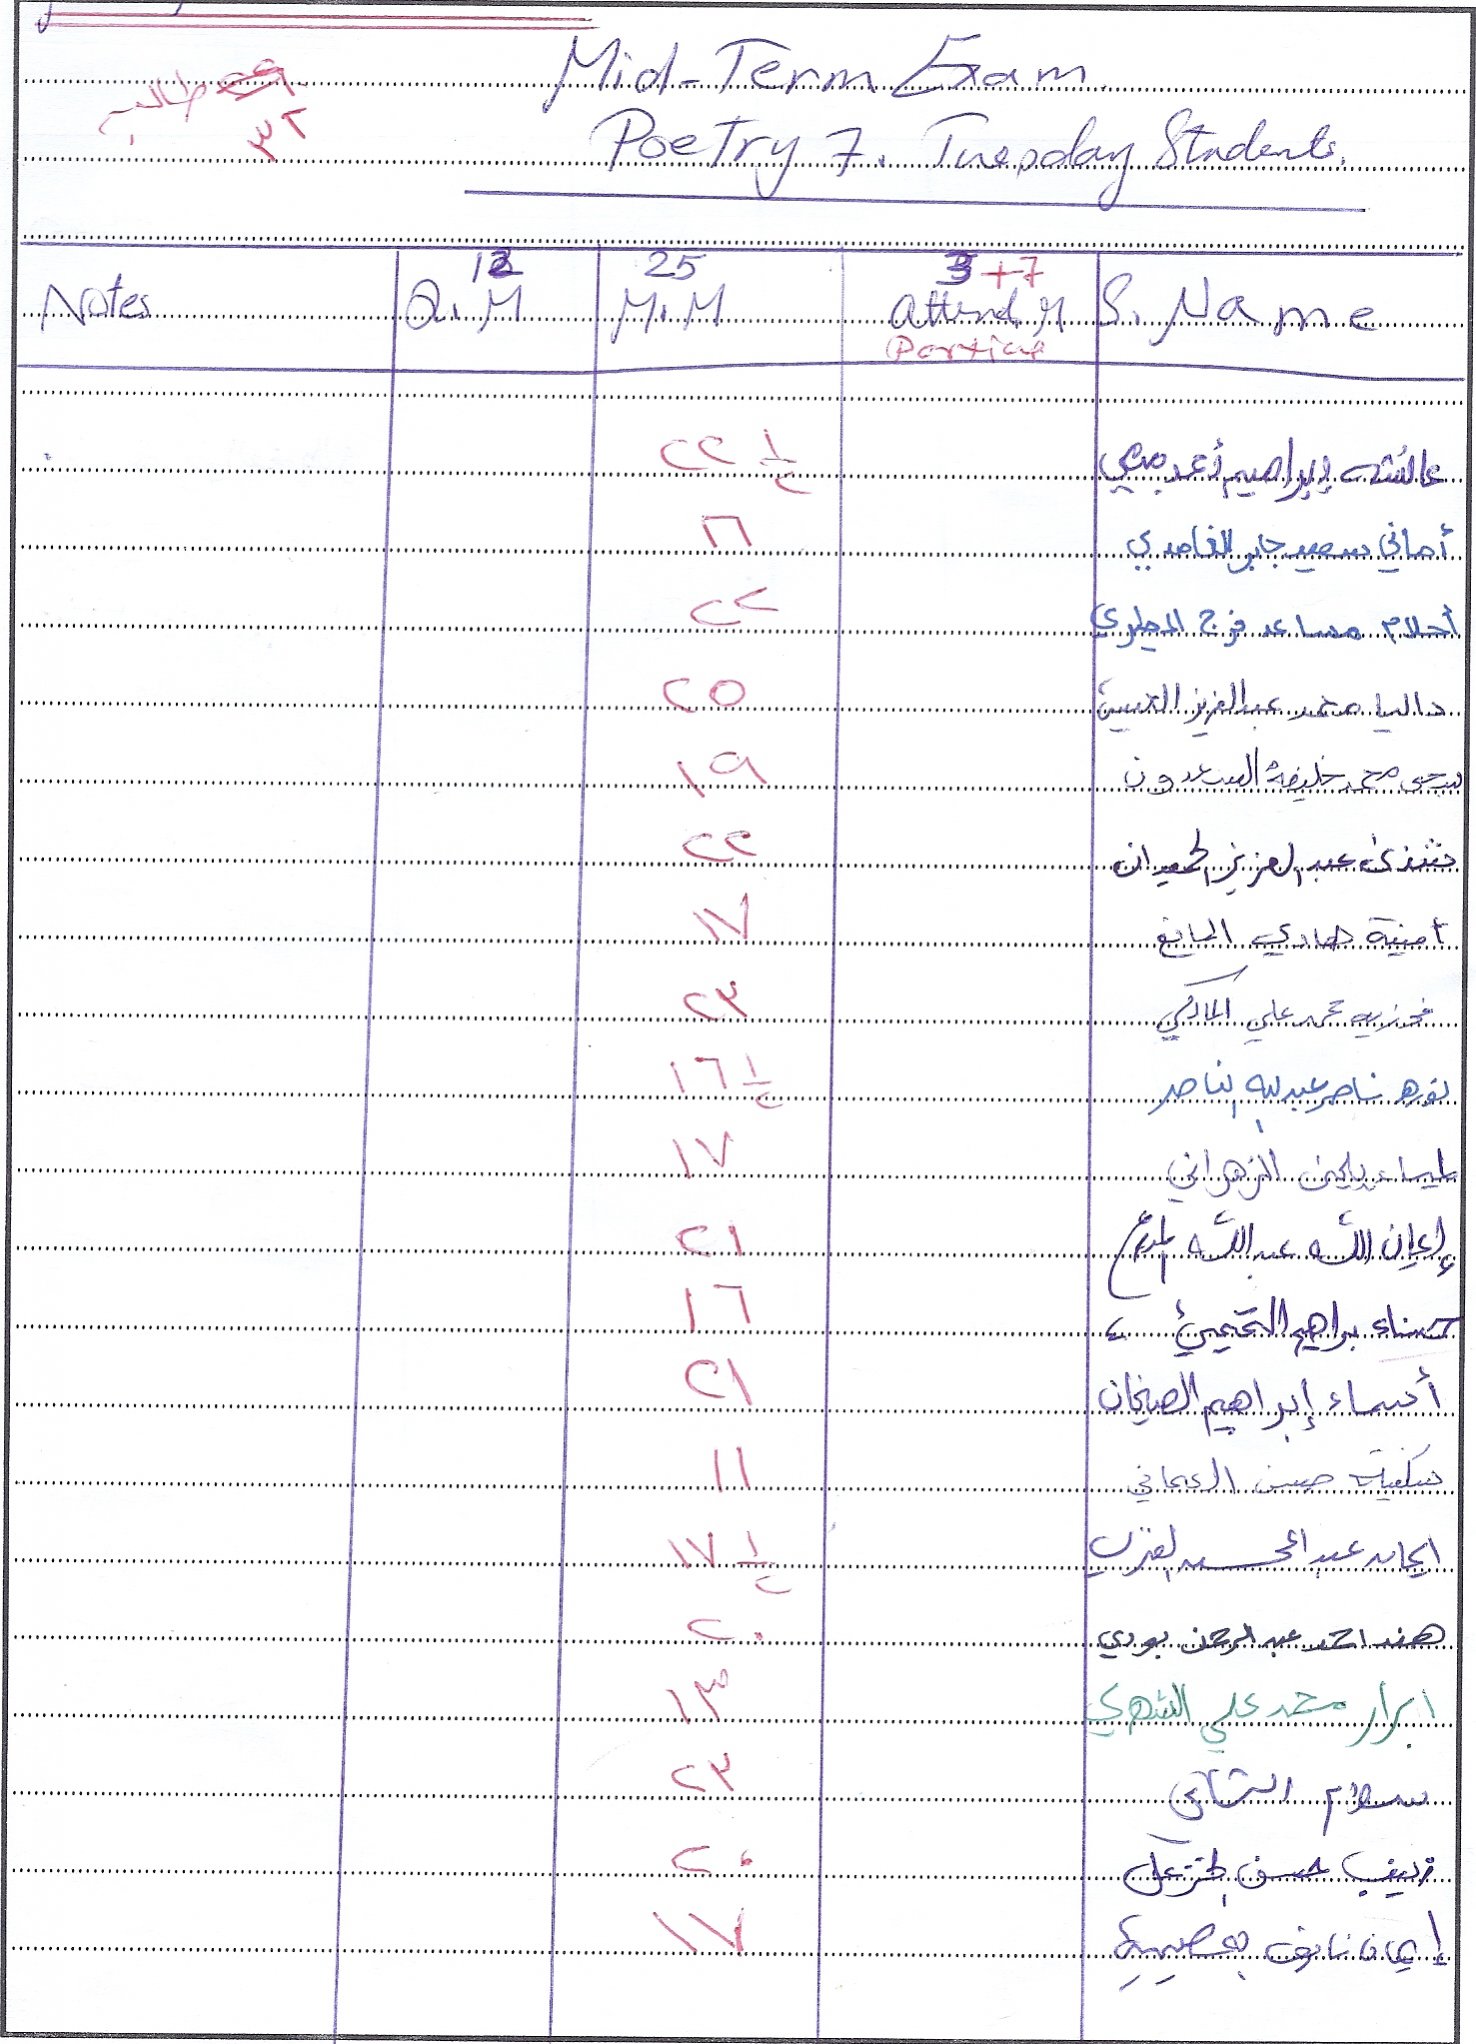 Mid-Term Exam
طالبه
٣٢
Poetry 7. Tuesday Students.
Notes Q.M 25 M.M 3 +7 Attend M Particip S. Name
٢٢ ١/٢ عائشه إبراهيم أحمد
١٦ أماني سعيد جابر الغامدي
٢٢ أحلام مساعد فرج المطيري
٢٥ داليا محمد عبدالعزيز
١٩ محمد خليفة السعدون
٢٢ شذى عبدالعزيز الحميدان
١٧ أمينة هادي المانع
٢٣ فوزيه محمد علي المالكي
١٦ ١/٢ نوره ناصر عبدالله الناصر
١٧ الزهراني
٢١ عبدالله
١٦ حسناء براهيم
٢١ أسماء إبراهيم الصيخان
١١ حسن
١٧ ١/٢ ايمان عبدالمحسن
٢٠ هند احمد عبدالرحمن بودي
١٣ ابرار محمد علي الشهري
٢٣ سلام
٢٠ زينب حسن
١٧ إيمان نايف